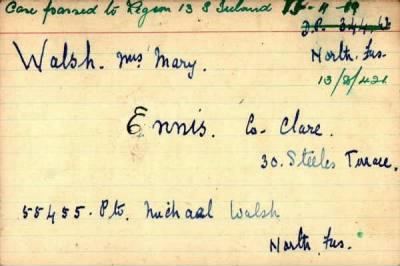 Case passed to Region 13 S Ireland
Walsh. Mrs Mary.
North. Fus.
13/8/421
Ennis. Co. Clare.
30. Steeles Terrace.
55455. Pte. Michael Walsh
North. Fus.